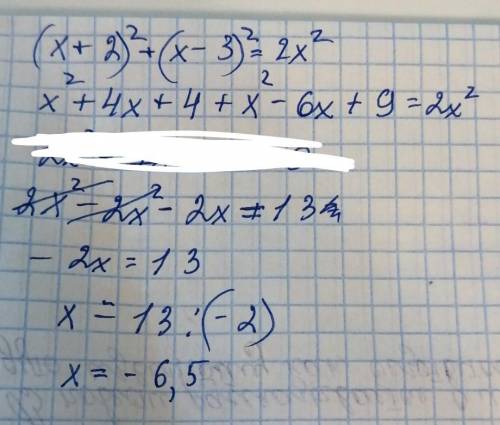 (x + 2)² + (x - 3)² = 2x²
x² + 4x + 4 + x² - 6x + 9 = 2x²
2x² - 2x² - 2x = 13
- 2x = 13
x = 13 : (- 2)
x = - 6,5